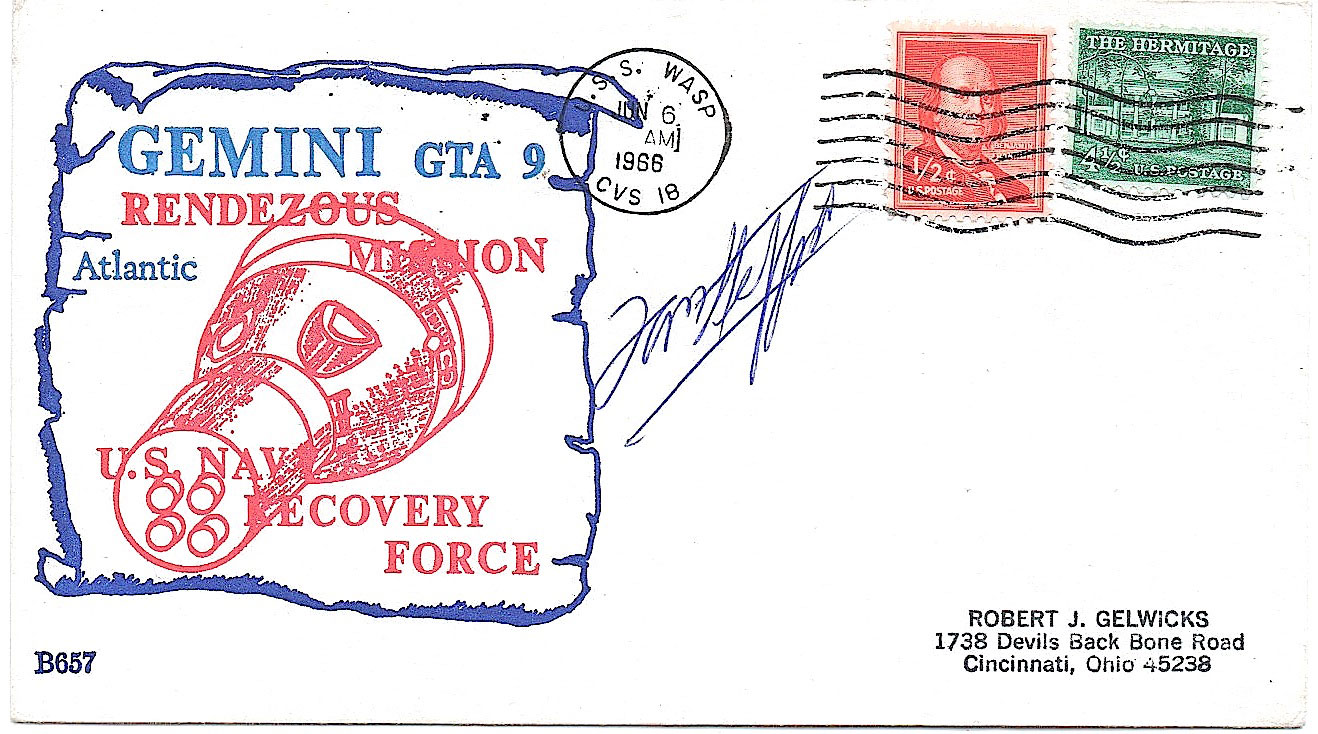 GEMINI GTA 9
RENDEZOUS
MISSION
Atlantic
U.S. NAVY
RECOVERY
FORCE
B657
U.S.S. WASP
JUN 6
AM
1966
CVS 18
BENJAMIN
1/2 ¢
U.S. POSTAGE
THE HERMITAGE
4½¢ U.S. POSTAGE
ROBERT J. GELWICKS
1738 Devils Back Bone Road
Cincinnati, Ohio 45238